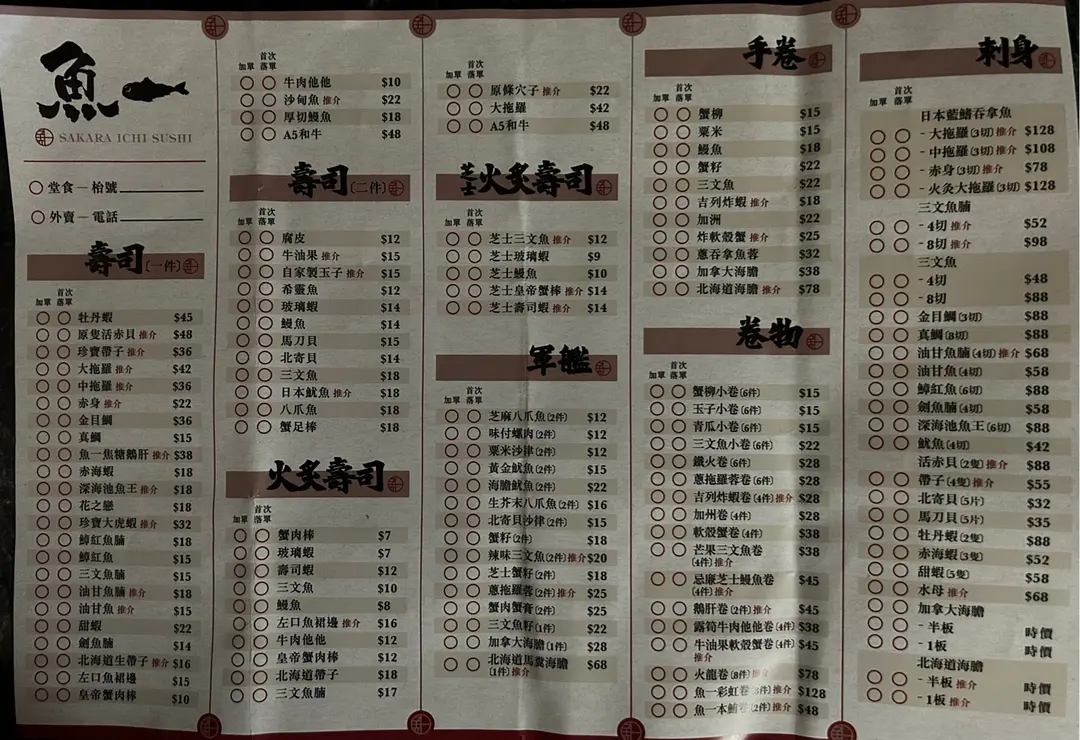 魚
SAKARA ICHI SUSHI
堂食 — 枱號
外賣 — 電話
壽司(一件)
加單 首次落單
牡丹蝦 $45
原隻活赤貝 推介 $48
珍寶帶子 推介 $36
大拖羅 推介 $42
中拖羅 推介 $36
赤身 推介 $22
金目鯛 $36
真鯛 $15
魚一焦糖鵝肝 推介 $38
赤海蝦 $18
深海池魚王 推介 $18
花之戀 $18
珍寶大虎蝦 推介 $32
鱆紅魚腩 $18
鱆紅魚 $15
三文魚腩 $15
油甘魚腩 推介 $18
油甘魚 推介 $15
甜蝦 $22
劍魚腩 $14
北海道生帶子 推介 $16
左口魚裙邊 $15
皇帝蟹肉棒 $10
加單 首次落單
牛肉他他 $10
沙甸魚 推介 $22
厚切鰻魚 $18
A5和牛 $48
壽司(二件)
加單 首次落單
腐皮 $12
牛油果 推介 $15
自家製玉子 推介 $15
希靈魚 $12
玻璃蝦 $14
鰻魚 $14
馬刀貝 $15
北寄貝 $14
三文魚 $18
日本魷魚 推介 $18
八爪魚 $18
蟹足棒 $18
火炙壽司
加單 首次落單
蟹肉棒 $7
玻璃蝦 $7
壽司蝦 $12
三文魚 $10
鰻魚 $8
左口魚裙邊 推介 $16
牛肉他他 $12
皇帝蟹肉棒 $12
北海道帶子 $18
三文魚腩 $17
加單 首次落單
原條穴子 推介 $22
大拖羅 $42
A5和牛 $48
芝士火炙壽司
加單 首次落單
芝士三文魚 推介 $12
芝士玻璃蝦 $9
芝士鰻魚 $10
芝士皇帝蟹棒 推介 $14
芝士壽司蝦 推介 $14
軍艦
加單 首次落單
芝麻八爪魚(2件) $12
味付螺肉(2件) $12
粟米沙律(2件) $12
黃金魷魚(2件) $15
海膽魷魚(2件) $22
生芥末八爪魚(2件) $16
北寄貝沙律(2件) $15
蟹籽(2件) $18
辣味三文魚(2件)推介 $20
芝士蟹籽(2件) $18
蔥拖羅蓉(2件)推介 $25
蟹肉蟹膏(2件) $25
三文魚籽(1件) $22
加拿大海膽(1件) $28
北海道馬糞海膽 $68
(1件)推介
手卷
加單 首次落單
蟹柳 $15
粟米 $15
鰻魚 $18
蟹籽 $22
三文魚 $22
吉列炸蝦 推介 $18
加洲 $22
炸軟殼蟹 推介 $25
蔥吞拿魚蓉 $32
加拿大海膽 $38
北海道海膽 推介 $78
卷物
加單 首次落單
蟹柳小卷(6件) $15
玉子小卷(6件) $15
青瓜小卷(6件) $15
三文魚小卷(6件) $22
鐵火卷(6件) $28
蔥拖羅蓉卷(6件) $28
吉列炸蝦卷(4件)推介 $28
加州卷(4件) $28
軟殼蟹卷(4件) $38
芒果三文魚卷 $38
(4件)推介
忌廉芝士鰻魚卷 $45
(4件)推介
鵝肝卷(2件)推介 $45
露筍牛肉他他卷(4件) $38
牛油果軟殼蟹卷(4件) $45
推介
火龍卷(8件)推介 $78
魚一彩虹卷(8件)推介 $128
魚一本鮪卷(2件)推介 $48
刺身
加單 首次落單
日本藍鰭吞拿魚
- 大拖羅(3切)推介 $128
- 中拖羅(3切)推介 $108
- 赤身(3切)推介 $78
- 火灸大拖羅(3切) $128
三文魚腩
- 4切 推介 $52
- 8切 推介 $98
三文魚
- 4切 $48
- 8切 $88
金目鯛(3切) $88
真鯛(8切) $88
油甘魚腩(4切)推介 $68
油甘魚(4切) $58
鱆紅魚(6切) $88
劍魚腩(4切) $58
深海池魚王(6切) $88
魷魚(4切) $42
活赤貝(2隻)推介 $88
帶子(4隻)推介 $55
北寄貝(5片) $32
馬刀貝(5片) $35
牡丹蝦(2隻) $88
赤海蝦(3隻) $52
甜蝦(5隻) $58
水母 推介 $68
加拿大海膽
- 半板 時價
- 1板 時價
北海道海膽
- 半板 推介 時價
- 1板 推介 時價